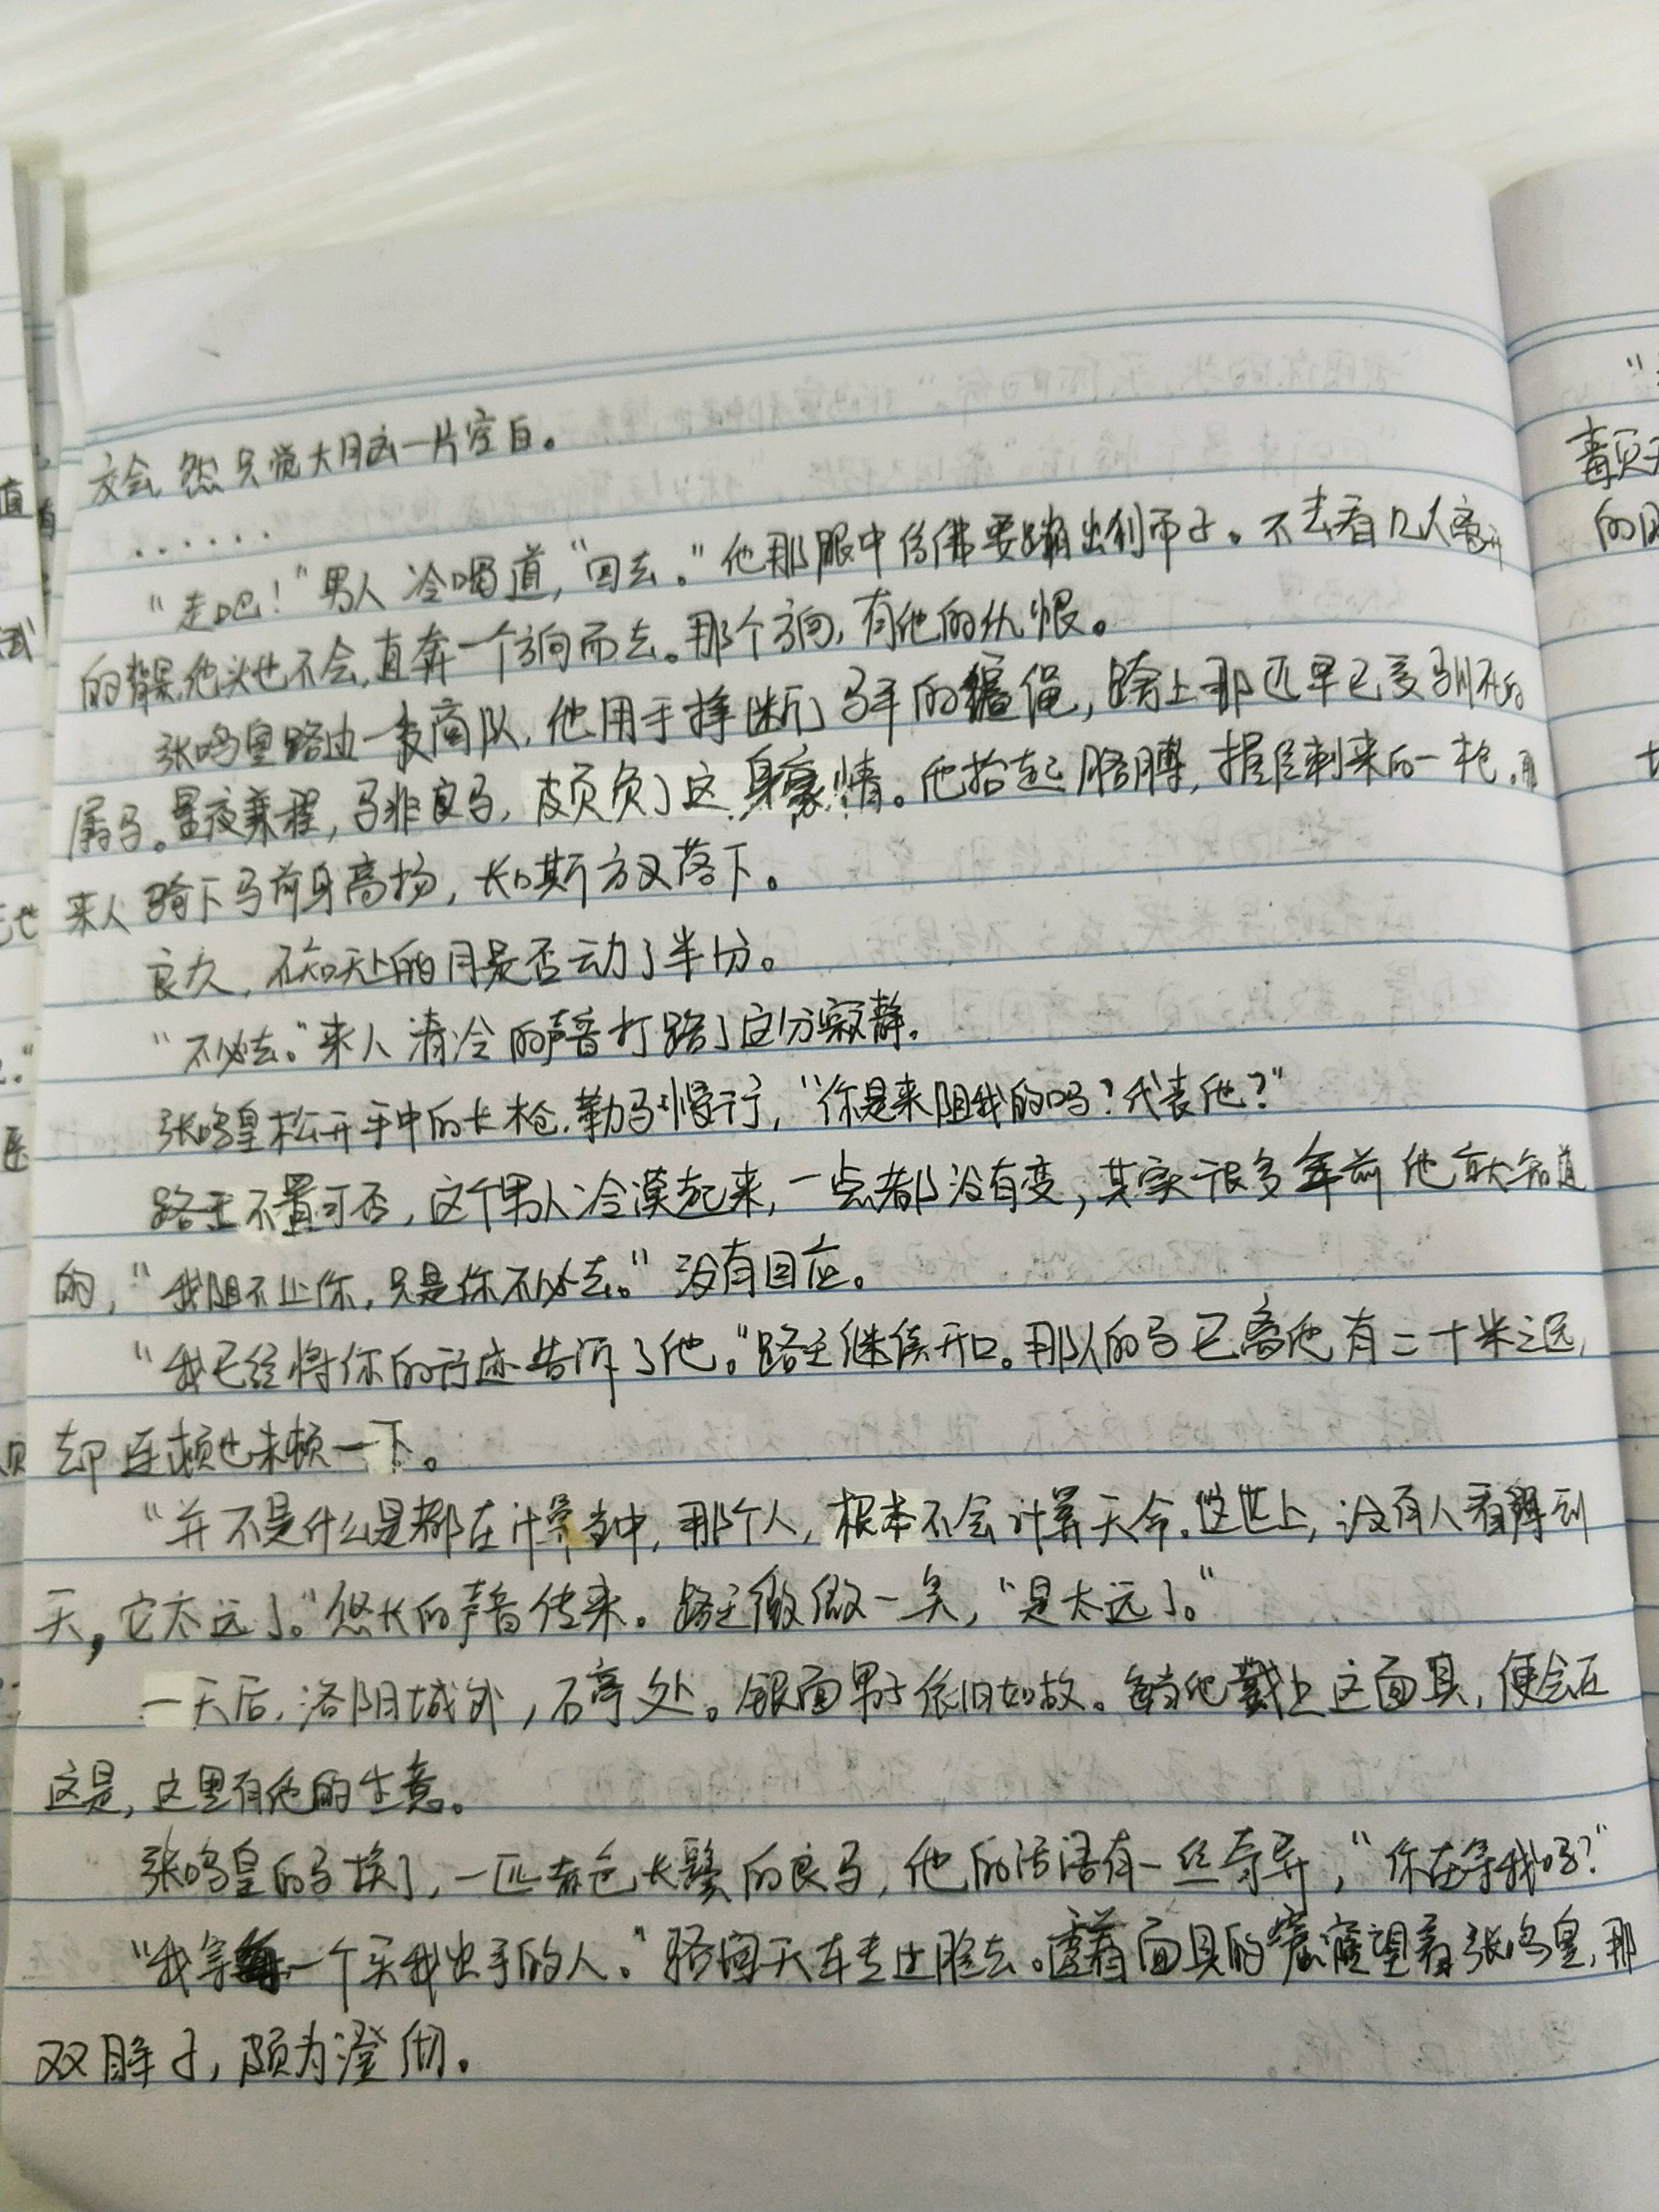 交会,然只觉大脑一片空白。
......
“走吧!”男人冷喝道,“回去。”他那眼中仿佛要蹦出刹币子。不去看几人离开
的背影,他头也不会,直奔一个方向而去。那个方向,有他的仇恨。
张鸣皇路由一支商队,他用手挣断马车的缰绳,跨上那匹早已受驯不的
属马。星夜兼程,马非良马,颇负了这身豪情。他抬起胳膊,握住刺来的一枪。那
来人骑下马前身高扬,长斯方又落下。
良久,不知天上的月是否动了半分。
“不必去。”来人清冷的声音打路了这分寂静。
张鸣皇松开手中的长枪,勒马慢行,“你是来阻我的吗?代表他?”
路主不置可否,这个男人冷漠起来,一点都没有变,其实很多年前他就知道
的,“我阻不止你,只是你不必去。”没有回应。
“我已经将你的行迹告诉了他。”路主继续开口。那人的马已离他有二十米之远,
却连顿也未顿一下。
“并不是什么是都在计算当中,那个人,根本不会计算天命。这世上,没有人看得到
天,它太远了。”悠长的声音传来。路主微微一笑,“是太远了。”
一天后,洛阳城外,石亭处。银面男子依旧如故。每当他戴上这面具,便会在
这是,这里有他的生意。
张鸣皇的马换了,一匹赤色长鬃的良马,他的话语有一丝奇异,“你在等我吗?”
“我等一个买我出手的人。”骆闻天车专过脸去。透着面具的窟窿望着张鸣皇,那
双眸子,颇为澄彻。
毒贝
的